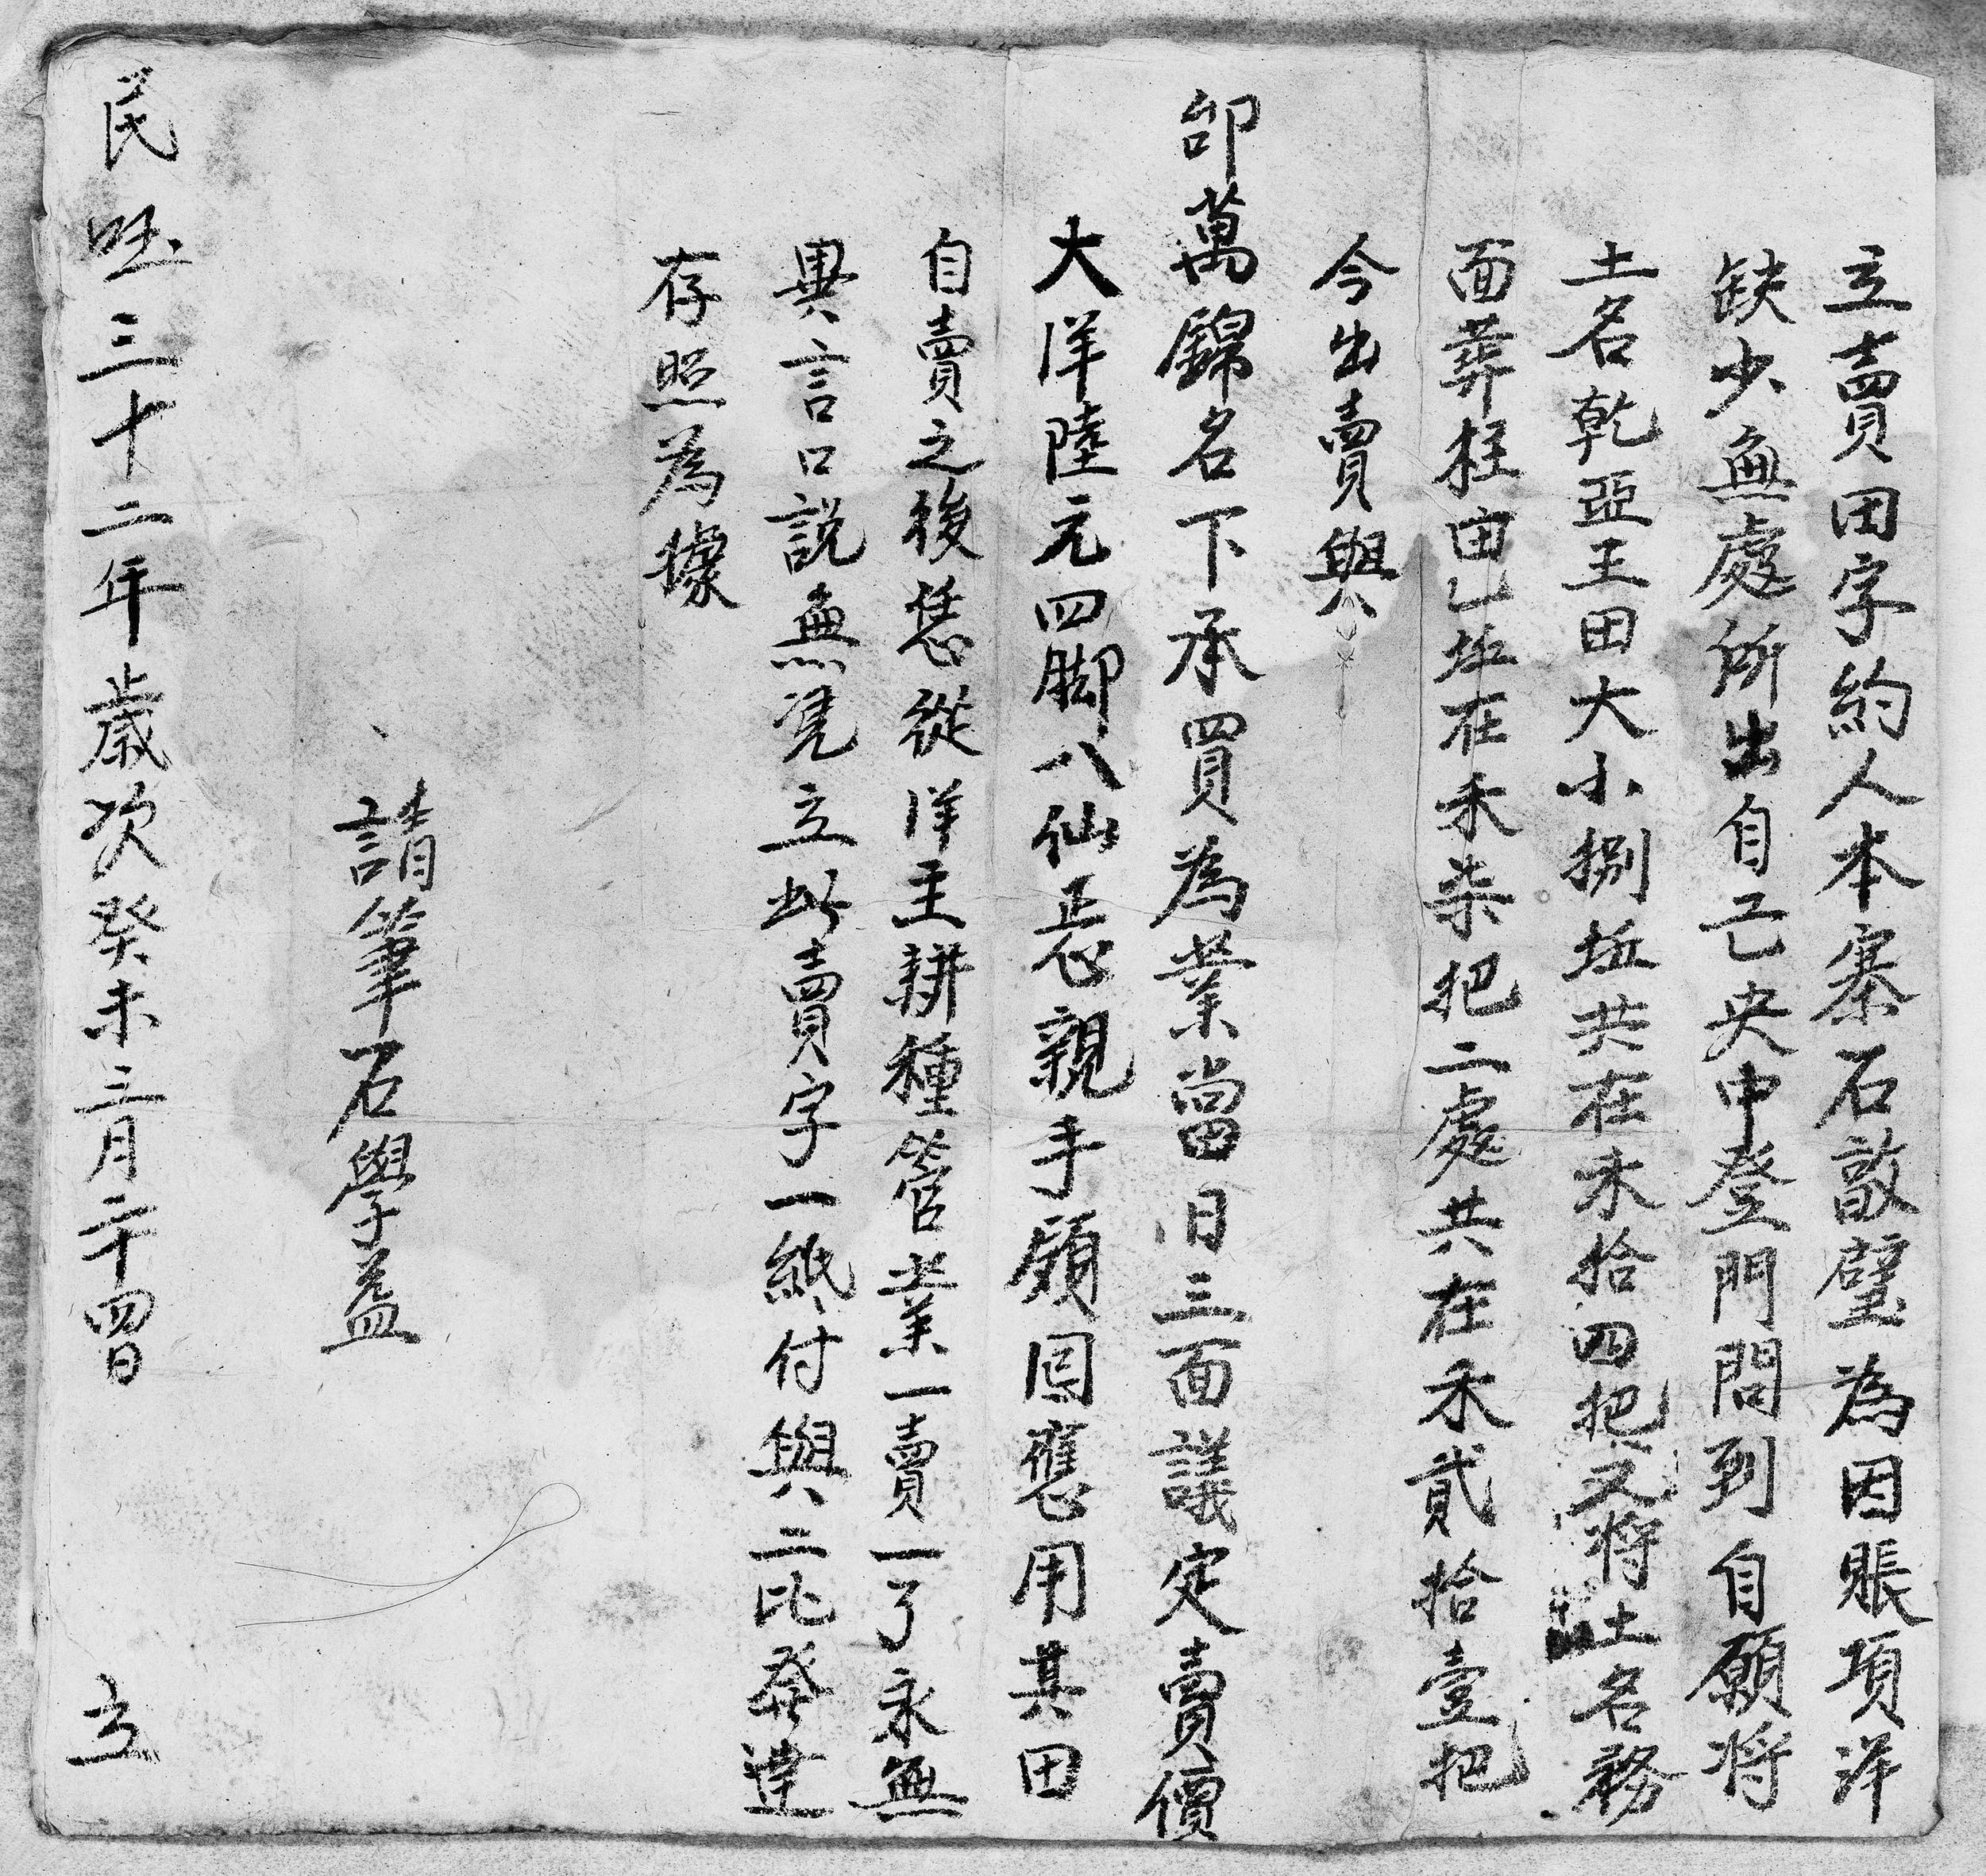 立賣田字約人本寨石敢璧為因賬項洋
缺少無處所出自己央中登門問到自願将
土名乾亞王田大小捌坵共在禾拾四把又将土名務
面葬柱田乙坵在禾柒把二處共在禾貳拾壹把
今出賣與
邰萬錦名下承買為業當日三面議定賣價
大洋陸元四脚八仙正親手領囬應用其田
自賣之後恁從洋主耕種管業一賣一了永無
異言口説無凴立此賣字一紙付與二比發達
存照為據
請筆石學益
民國三十二年歲次癸未三月二十四日 立